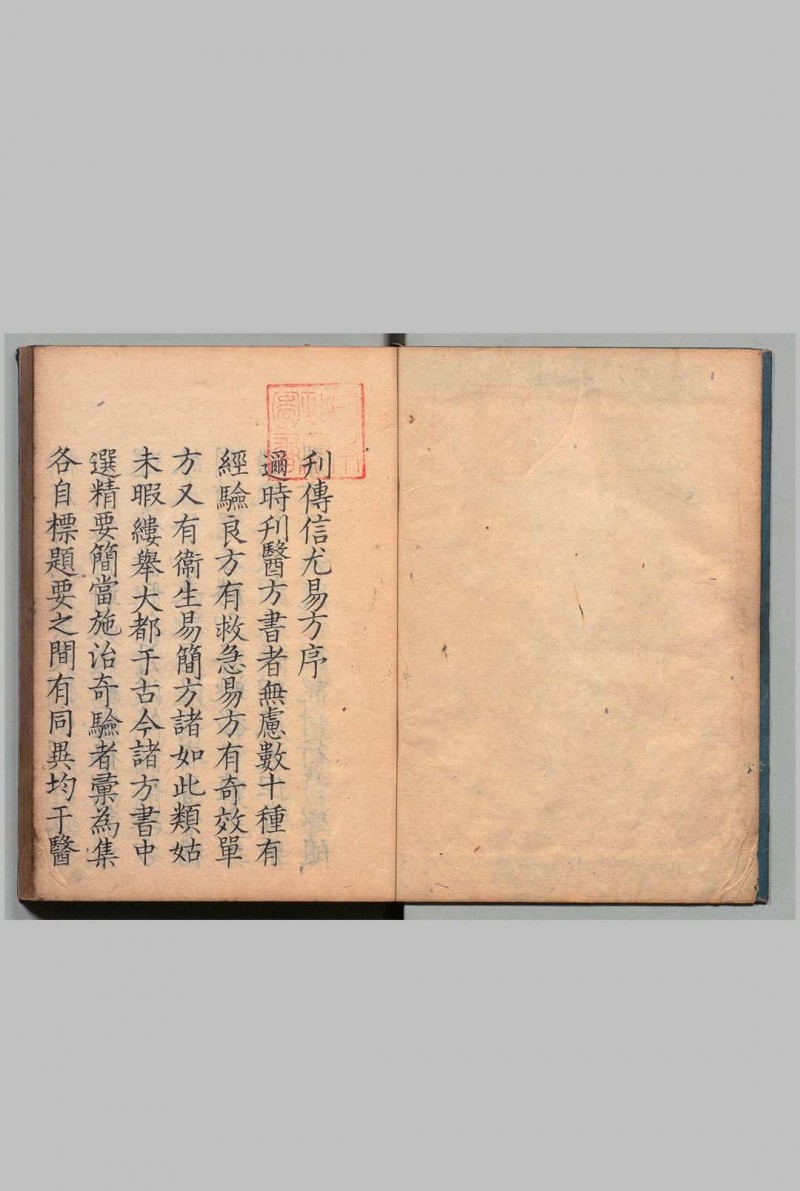 刋傳信尤易方序
邇時刋醫方書者無慮數十種有
經驗良方有救急易方有竒效單
方又有衞生易簡方諸如此類姑
未暇縷舉大都于古今諸方書中
選精要簡當施治竒驗者彙為集
各自標題要之間有同異均于醫